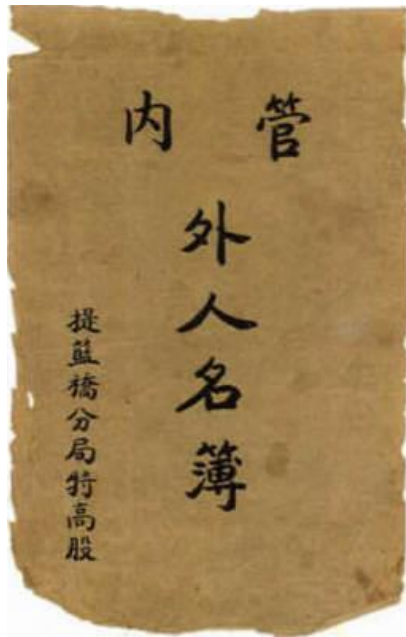 管内
外人名簿
提籃橋分局特高股